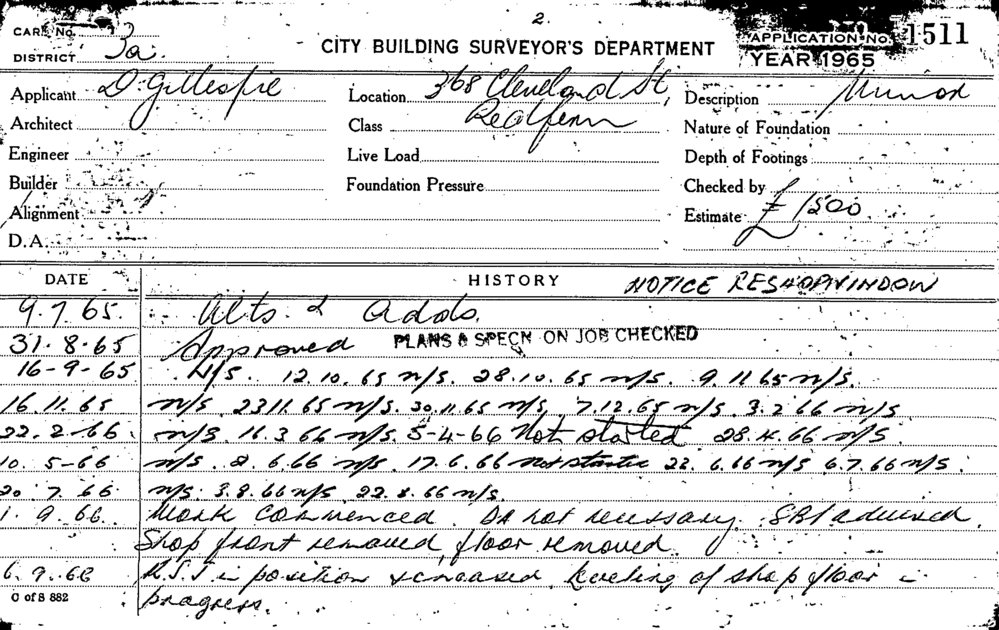 2.
CARD No.
DISTRICT 3a
CITY BUILDING SURVEYOR'S DEPARTMENT
APPLICATION No. 1511
YEAR 1965
Applicant D. Gillespie
Location 368 Cleveland St,
Redfern
Description Minor
Architect
Class
Nature of Foundation
Engineer
Live Load
Depth of Footings
Builder
Foundation Pressure
Checked by
Alignment
Estimate £1500
D.A.
DATE HISTORY NOTICE RE SHOP WINDOW
9.7.65. Alts. & Adds.
31.8.65 Approved PLANS & SPECN ON JOB CHECKED
16-9-65 N/S. 12.10.65 n/s. 28.10.65 n/s. 9.11 65 n/s.
16.11.65 n/s. 23 11.65 n/s. 30.11.65 n/s. 7.12.65 n/s. 3.2 66 n/s.
22.2-66. n/s. 16.3 66 n/s. 5-4-66 Not started 28.4.66 n/s.
10.5-66 n/s. 2.6.66 n/s. 17.6.66 not started 22.6.66 n/s 6.7.66 n/s.
20.7.66. n/s. 3.8.66 n/s. 22.8.66 n/s.
1.9.66. Work commenced. DA not necessary. SBI advised.
Shop front removed, floor removed.
6.9.66 R.S.J. in position & encased. Leveling of shop floor in
progress.
O of S 882